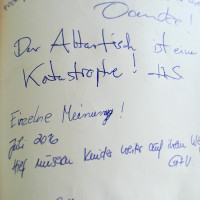 Danke!
Der Altartisch ist eine
Katastrophe! HS
Einzelne Meinung!
Juli 20
Hier müssen Kinder weiter auf ihren